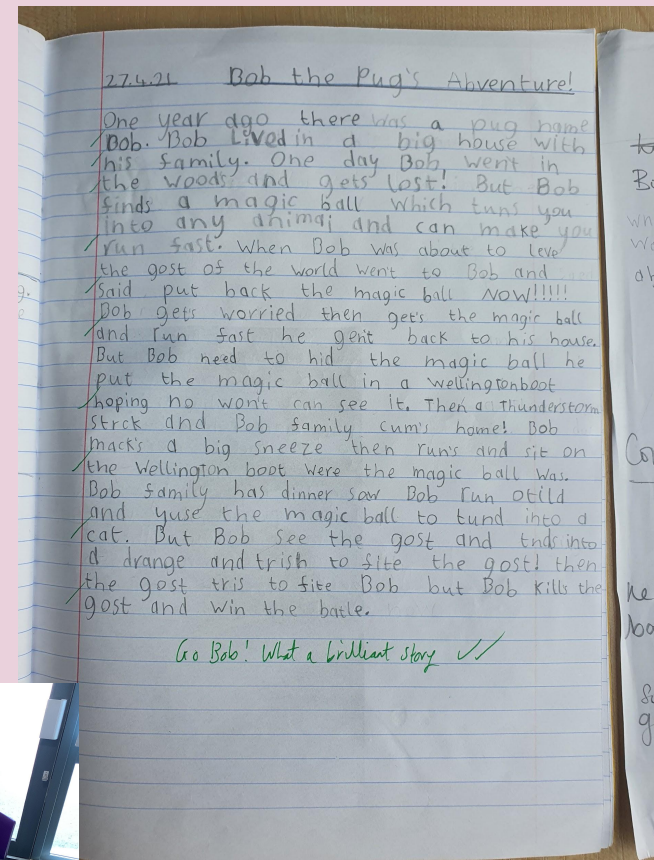 27.4.21 Bob the Pug's Abventure!
One year ago there was a pug name
Bob. Bob Lived in a big house with
his family. One day Bob went in
the woods and gets lost! But Bob
finds a magic ball which tuns you
into any animal and can make you
run fast. When Bob was about to leve
the gost of the world went to Bob and
said put back the magic ball NOW!!!!!
Bob gets worried then get's the magic ball
and run fast he gent back to his house.
But Bob need to hid the magic ball he
put the magic ball in a wellingtonboot
hoping no won't can see it. Then a Thunderstorm
strck and Bob family cum's home! Bob
mack's a big sneeze then run's and sit on
the Wellington boot were the magic ball was.
Bob family has dinner saw Bob run otild
and yuse the magic ball to tund into a
cat. But Bob see the gost and tnds into
a drange and trish to fite the gost! then
the gost tris to fite Bob but Bob kills the
gost and win the batle.
Go Bob! What a brilliant story